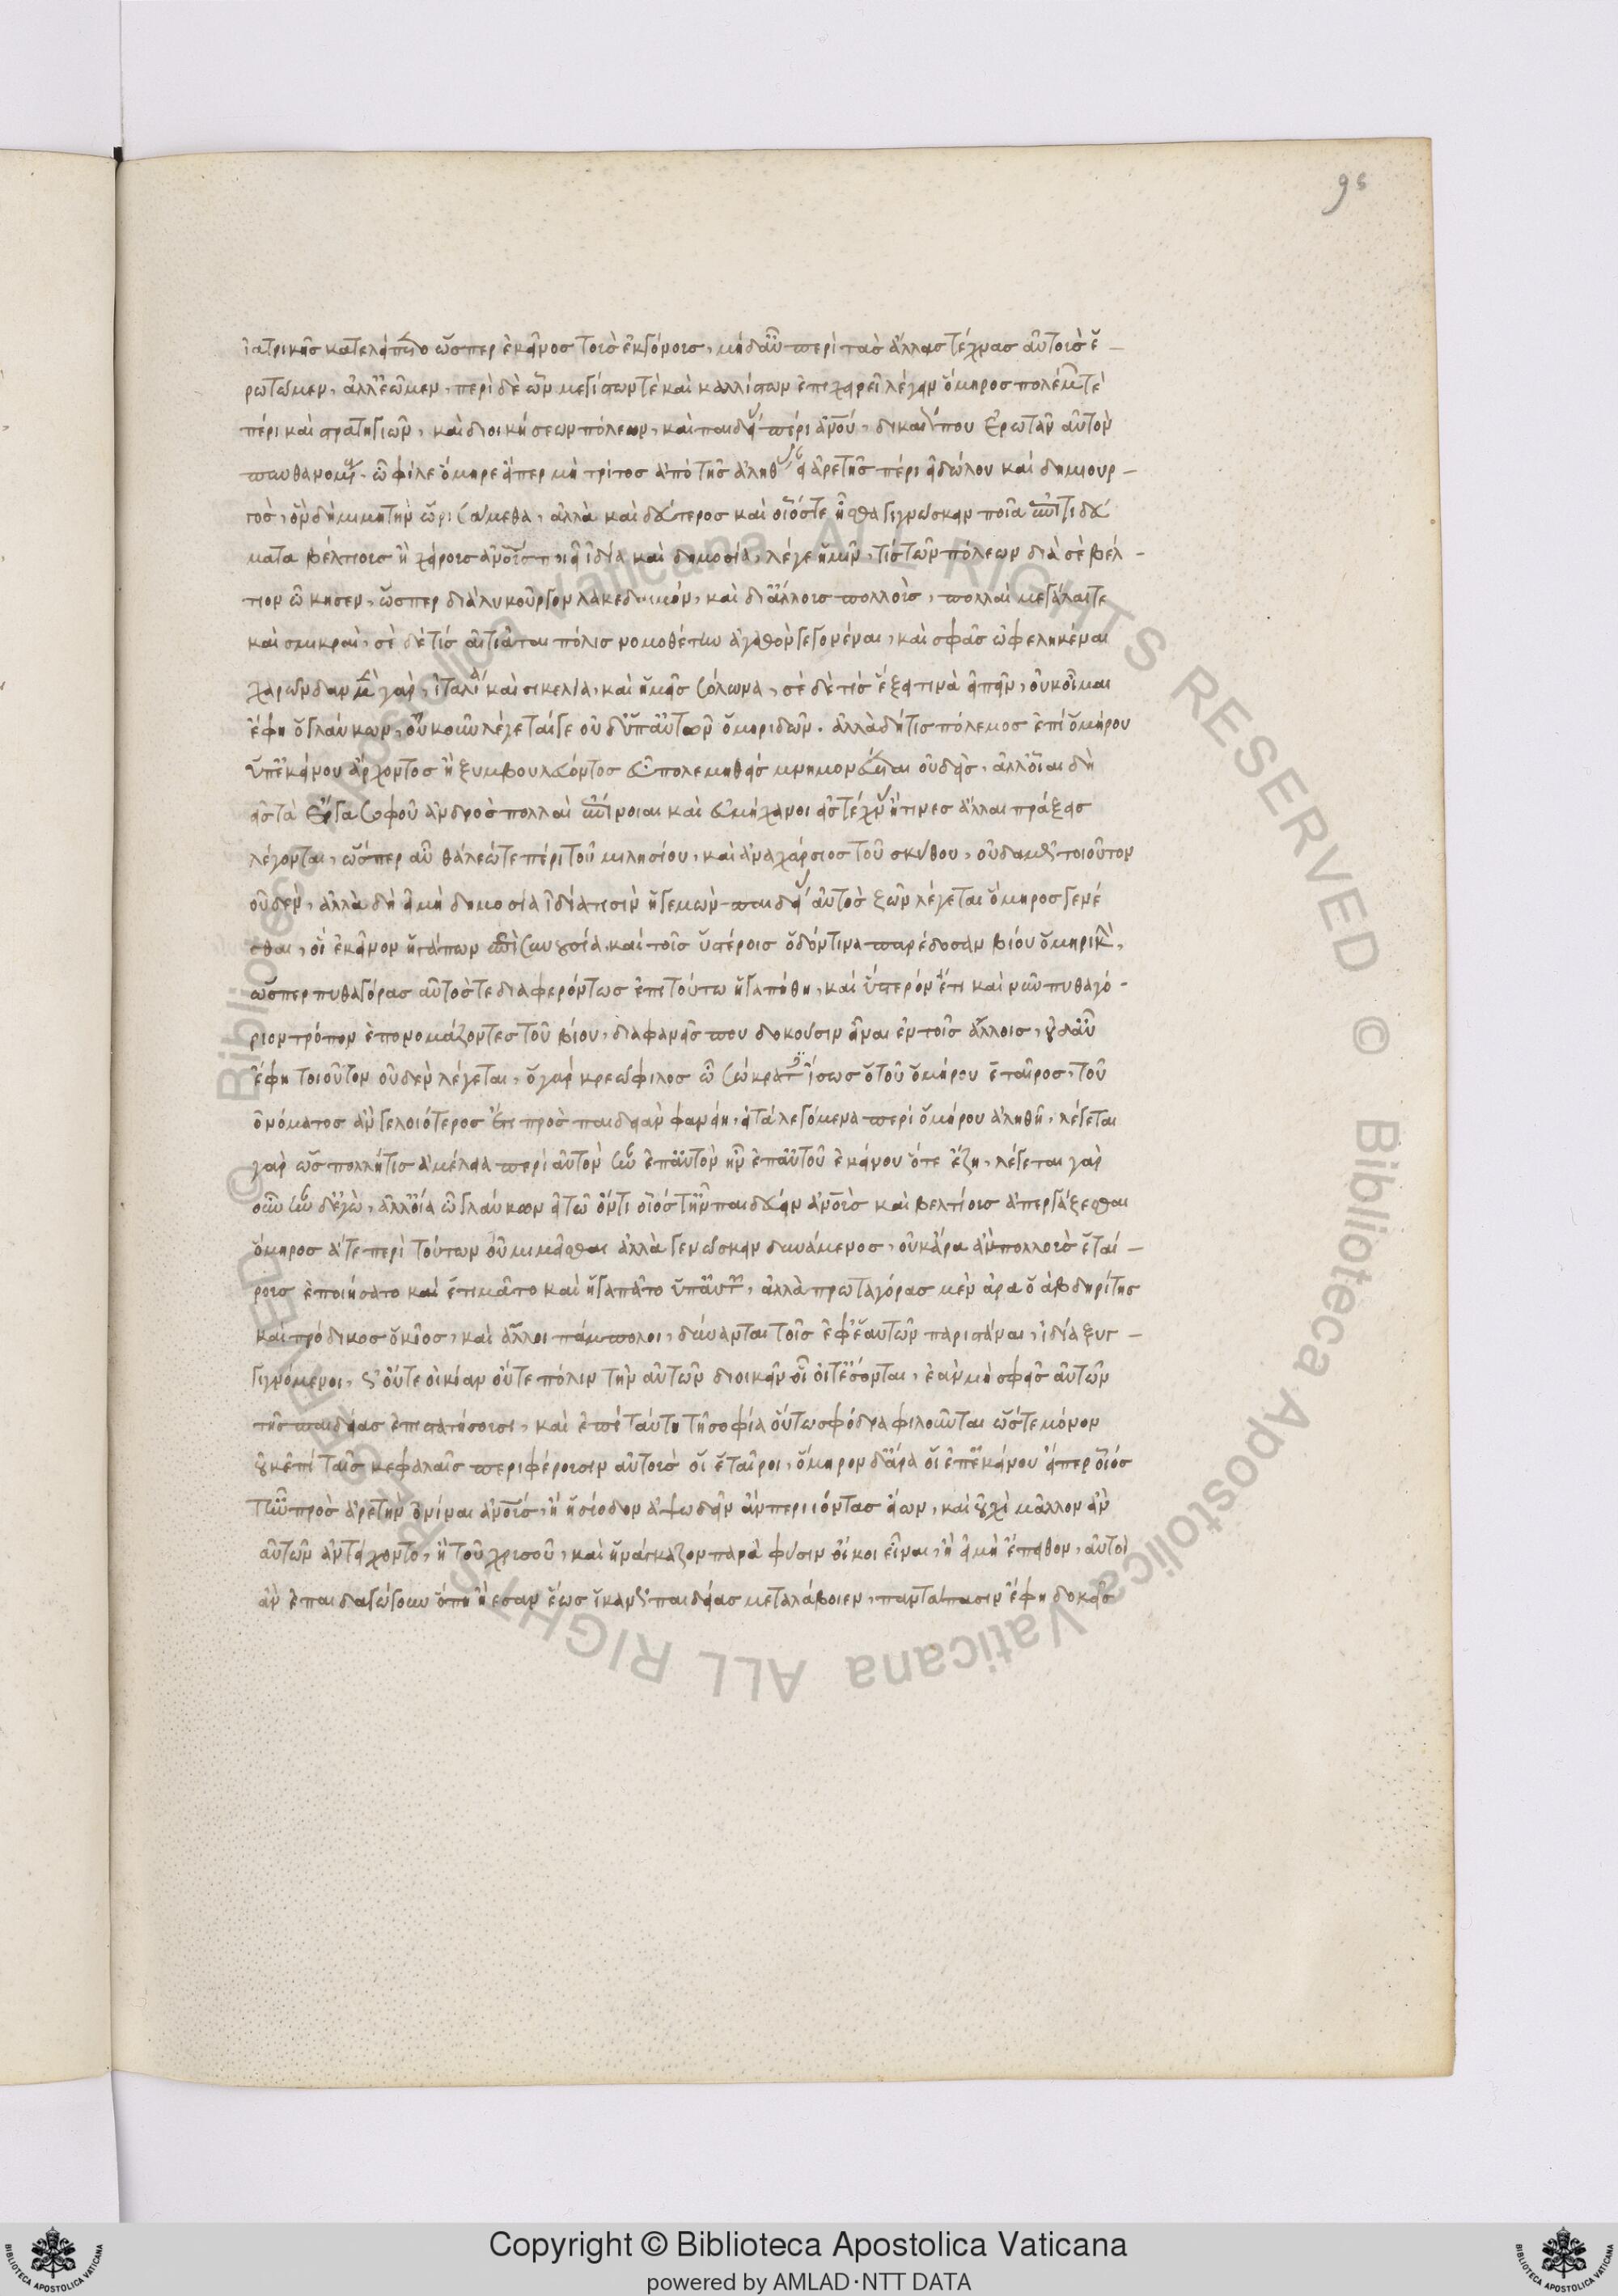 98
ἰατρικῆς κατελείπετο ὥσπερ ἐκεῖνος τοὺς ἐκγόνους, μὴ δ' αὖ περὶ τὰς ἄλλας τέχνας αὐτοὺς ἐ-
ρωτῶμεν, ἀλλ' ἐῶμεν, περὶ δὲ ὧν μεγίστων τὲ καὶ καλλίστων ἐπιχειρεῖ λέγειν ὅμηρος πολέμων τὲ
πέρι καὶ στρατηγιῶν, καὶ διοικήσεων πόλεων, καὶ παιδείας πέρι ἀνου, δίκαιόν που ἐρωτᾶν αὐτὸν
πυνθανομένους. ὦ φίλε ὅμηρε εἴπερ μὴ τρίτος ἀπὸ τῆς ἀληθείας εἶ ἀρετῆς πέρι εἰδώλου καὶ δημιουρ-
γος, ὃν δὴ μιμητὴν ὡρισάμεθα, ἀλλὰ καὶ δεύτερος καὶ οἷός τε ἦσθα γιγνώσκειν ποῖα ἐπιτηδεύ
ματα βελτίους ἢ χείρους ἀνους ποιεῖ ἰδία καὶ δημοσία, λέγε ἡμῖν, τίς τῶν πόλεων διὰ σὲ βέλ-
τιον ᾤκησεν, ὥσπερ διὰ λυκοῦργον λακεδαίμων, καὶ δι' ἄλλους πολλοὺς, πολλαὶ μεγάλαι τε
καὶ σμικραὶ, σὲ δὲ τίς αἰτιᾶται πόλις νομοθέτην ἀγαθὸν γεγονέναι, καὶ σφᾶς ὠφεληκέναι
χαρώνδαν μὲν γὰρ, ἰταλία καὶ σικελία, καὶ ἡμεῖς σόλωνα, σὲ δὲ τίς ἕξει τινὰ εἰπεῖν, οὐκ οἶμαι
ἔφη ὁ γλαύκων, οὔκουν λέγεταί γε οὐδ' ὑπ' αὐτῶν ὁμηριδῶν. ἀλλὰ δή τις πόλεμος ἐπὶ ὁμήρου
ὑπ' ἐκείνου ἄρχοντος ἢ ξυμβουλεύοντος εὖ πολεμηθεὶς μνημονεύεται οὐδεὶς, ἀλλ' οἷαι δὴ
εἰς τὰ ἔργα σοφοῦ ἀνδρὸς πολλαὶ ἐπίνοιαι καὶ εὐμήχανοι εἰς τέχνας ἤ τινες ἄλλαι πράξεις
λέγονται, ὥσπερ αὖ θάλεώ τε πέρι τοῦ μιλησίου, καὶ ἀναχάρσιος τοῦ σκύθου, οὐδαμῶς τοιοῦτον
οὐδέν, ἀλλὰ δὴ εἰ μὴ δημοσία ἰδία τισὶν ἡγεμὼν παιδείας αὐτὸς ζῶν λέγεται ὅμηρος γενέ
σθαι, οἳ ἐκεῖνον ἠγάπων ἐπὶ συνουσία, καὶ τοῖς ὑστέροις ὁδόν τινα παρέδοσαν βίου ὁμηρικὴν,
ὥσπερ πυθαγόρας αὐτός τε διαφερόντως ἐπὶ τούτω ἠγαπήθη, καὶ ὕστερον ἔτι καὶ νῦν πυθαγό-
ριον τρόπον ἐπονομάζοντες τοῦ βίου, διαφανεῖς που δοκοῦσιν εἶναι ἐν τοῖς ἄλλοις, οὐδ' αὖ
ἔφη τοιοῦτον οὐδὲν λέγεται, ὁ γὰρ κρεώφιλος ὦ σώκρατες ἴσως ὁ τοῦ ὁμήρου ἑταῖρος, τοῦ
ὀνόματος ἂν γελοιότερος ἔτι πρὸς παιδείαν φανείη, εἰ τὰ λεγόμενα περὶ ὁμήρου ἀληθῆ, λέγεται
γὰρ ὡς πολλή τις ἀμέλεια περὶ αὐτὸν ἦν ἐπ' αὐτὸν ἦν ἐπ' αὐτοῦ ἐκείνου ὅτε ἔζη, λέγεται γὰρ
οὖν ἦν δ' ἐγὼ, ἀλλ' οἴει ὦ γλαύκων εἰ τῶ ὄντι οἷός τ' ἦν παιδεύειν ἀνους καὶ βελτίους ἀπεργάζεσθαι
ὅμηρος ἅτε περὶ τούτων οὐ μιμεῖσθαι ἀλλὰ γενώσκειν δυνάμενος, οὐκ ἄρα ἂν πολλοὺς ἑταί-
ρους ἐποιήσατο καὶ ἐτιμᾶτο καὶ ἠγαπᾶτο ὑπ' αὐτῶν, ἀλλὰ πρωταγόρας μὲν ἄρα ὁ ἀβδηρίτης
καὶ πρόδικος ὁ κῖος, καὶ ἄλλοι πάμπολοι, δύνανται τοῖς ἐφ' ἑαυτῶν παριστάναι, ἰδία ξυγ-
γιγνόμενοι, ὡς οὔτε οἰκίαν οὔτε πόλιν τὴν αὑτῶν διοικεῖν οἷοί τ' ἔσονται, ἐὰν μὴ σφεῖς αὐτῶν
τῆς παιδείας ἐπιστατήσουσι, καὶ ἐπὶ ταύτη τῇ σοφία οὕτω σφόδρα φιλοῦνται ὥστε μόνον
οὐκ ἐπὶ ταῖς κεφαλαῖς περιφέρουσιν αὐτοὺς οἱ ἑταῖροι, ὅμηρον δ' ἄρα οἱ ἐπ' ἐκείνου εἴπερ οἷός
τ' ἦν πρὸς ἀρετὴν ὀνίναι ἀνους, ἢ ἡσίοδον ἀψωδεῖν ἂν περιιόντας εἴων, καὶ οὐχὶ μᾶλλον ἂν
αὐτῶν ἀντείχοντο, ἢ τοῦ χρυσοῦ, καὶ ἠνάγκαζον παρὰ φύσιν οἴκοι εἶναι, ἢ εἰ μὴ ἔπειθον, αὐτοὶ
ἂν ἐπαιδαγώγουν ὅπη ἤεσαν ἕως ἱκανῶς παιδείας μεταλάβοιεν, πανταπασιν ἔφη δοκεῖς